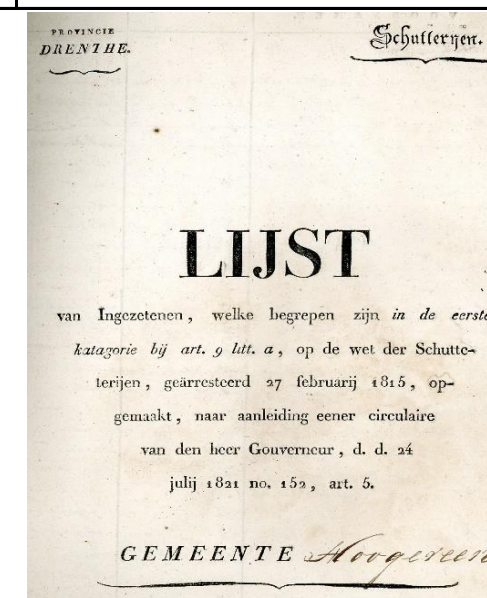 PROVINCIE
DRENTHE.
Schutterijen.
LIJST
van Ingezetenen, welke begrepen zijn in de eerste
katagorie bij art. 9 litt. a, op de wet der Schutte-
terijen, geärresteerd 27 februarij 1815, op-
gemaakt, naar aanleiding eener circulaire
van den heer Gouverneur, d. d. 24
julij 1821 no. 152, art. 5.
GEMEENTE Hoogeveen